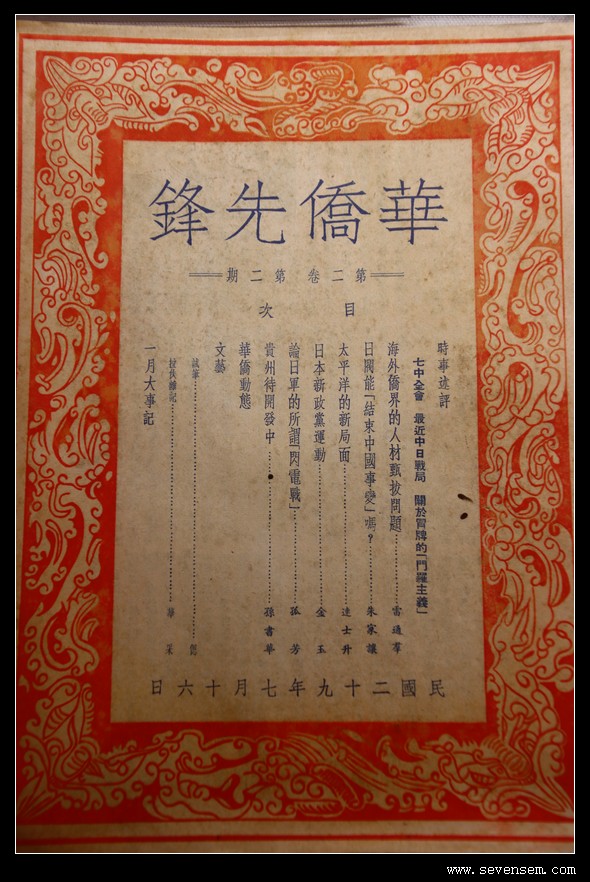 華僑先鋒
第二卷 第二期
目次
時事述評
七中全會 最近中日戰局 關於冒牌的「門羅主義」
海外僑界的人材甄拔問題………雷通羣
日閥能「結束中國事變」嗎？………朱家讓
太平洋的新局面………連士升
日本新政黨運動………金玉
論日軍的所謂「閃電戰」………孤芳
貴州待開發中………孫書華
華僑動態
文藝
試筆………
雜記………華
一月大事記
民國二十九年七月十六日
www.sevensem.com